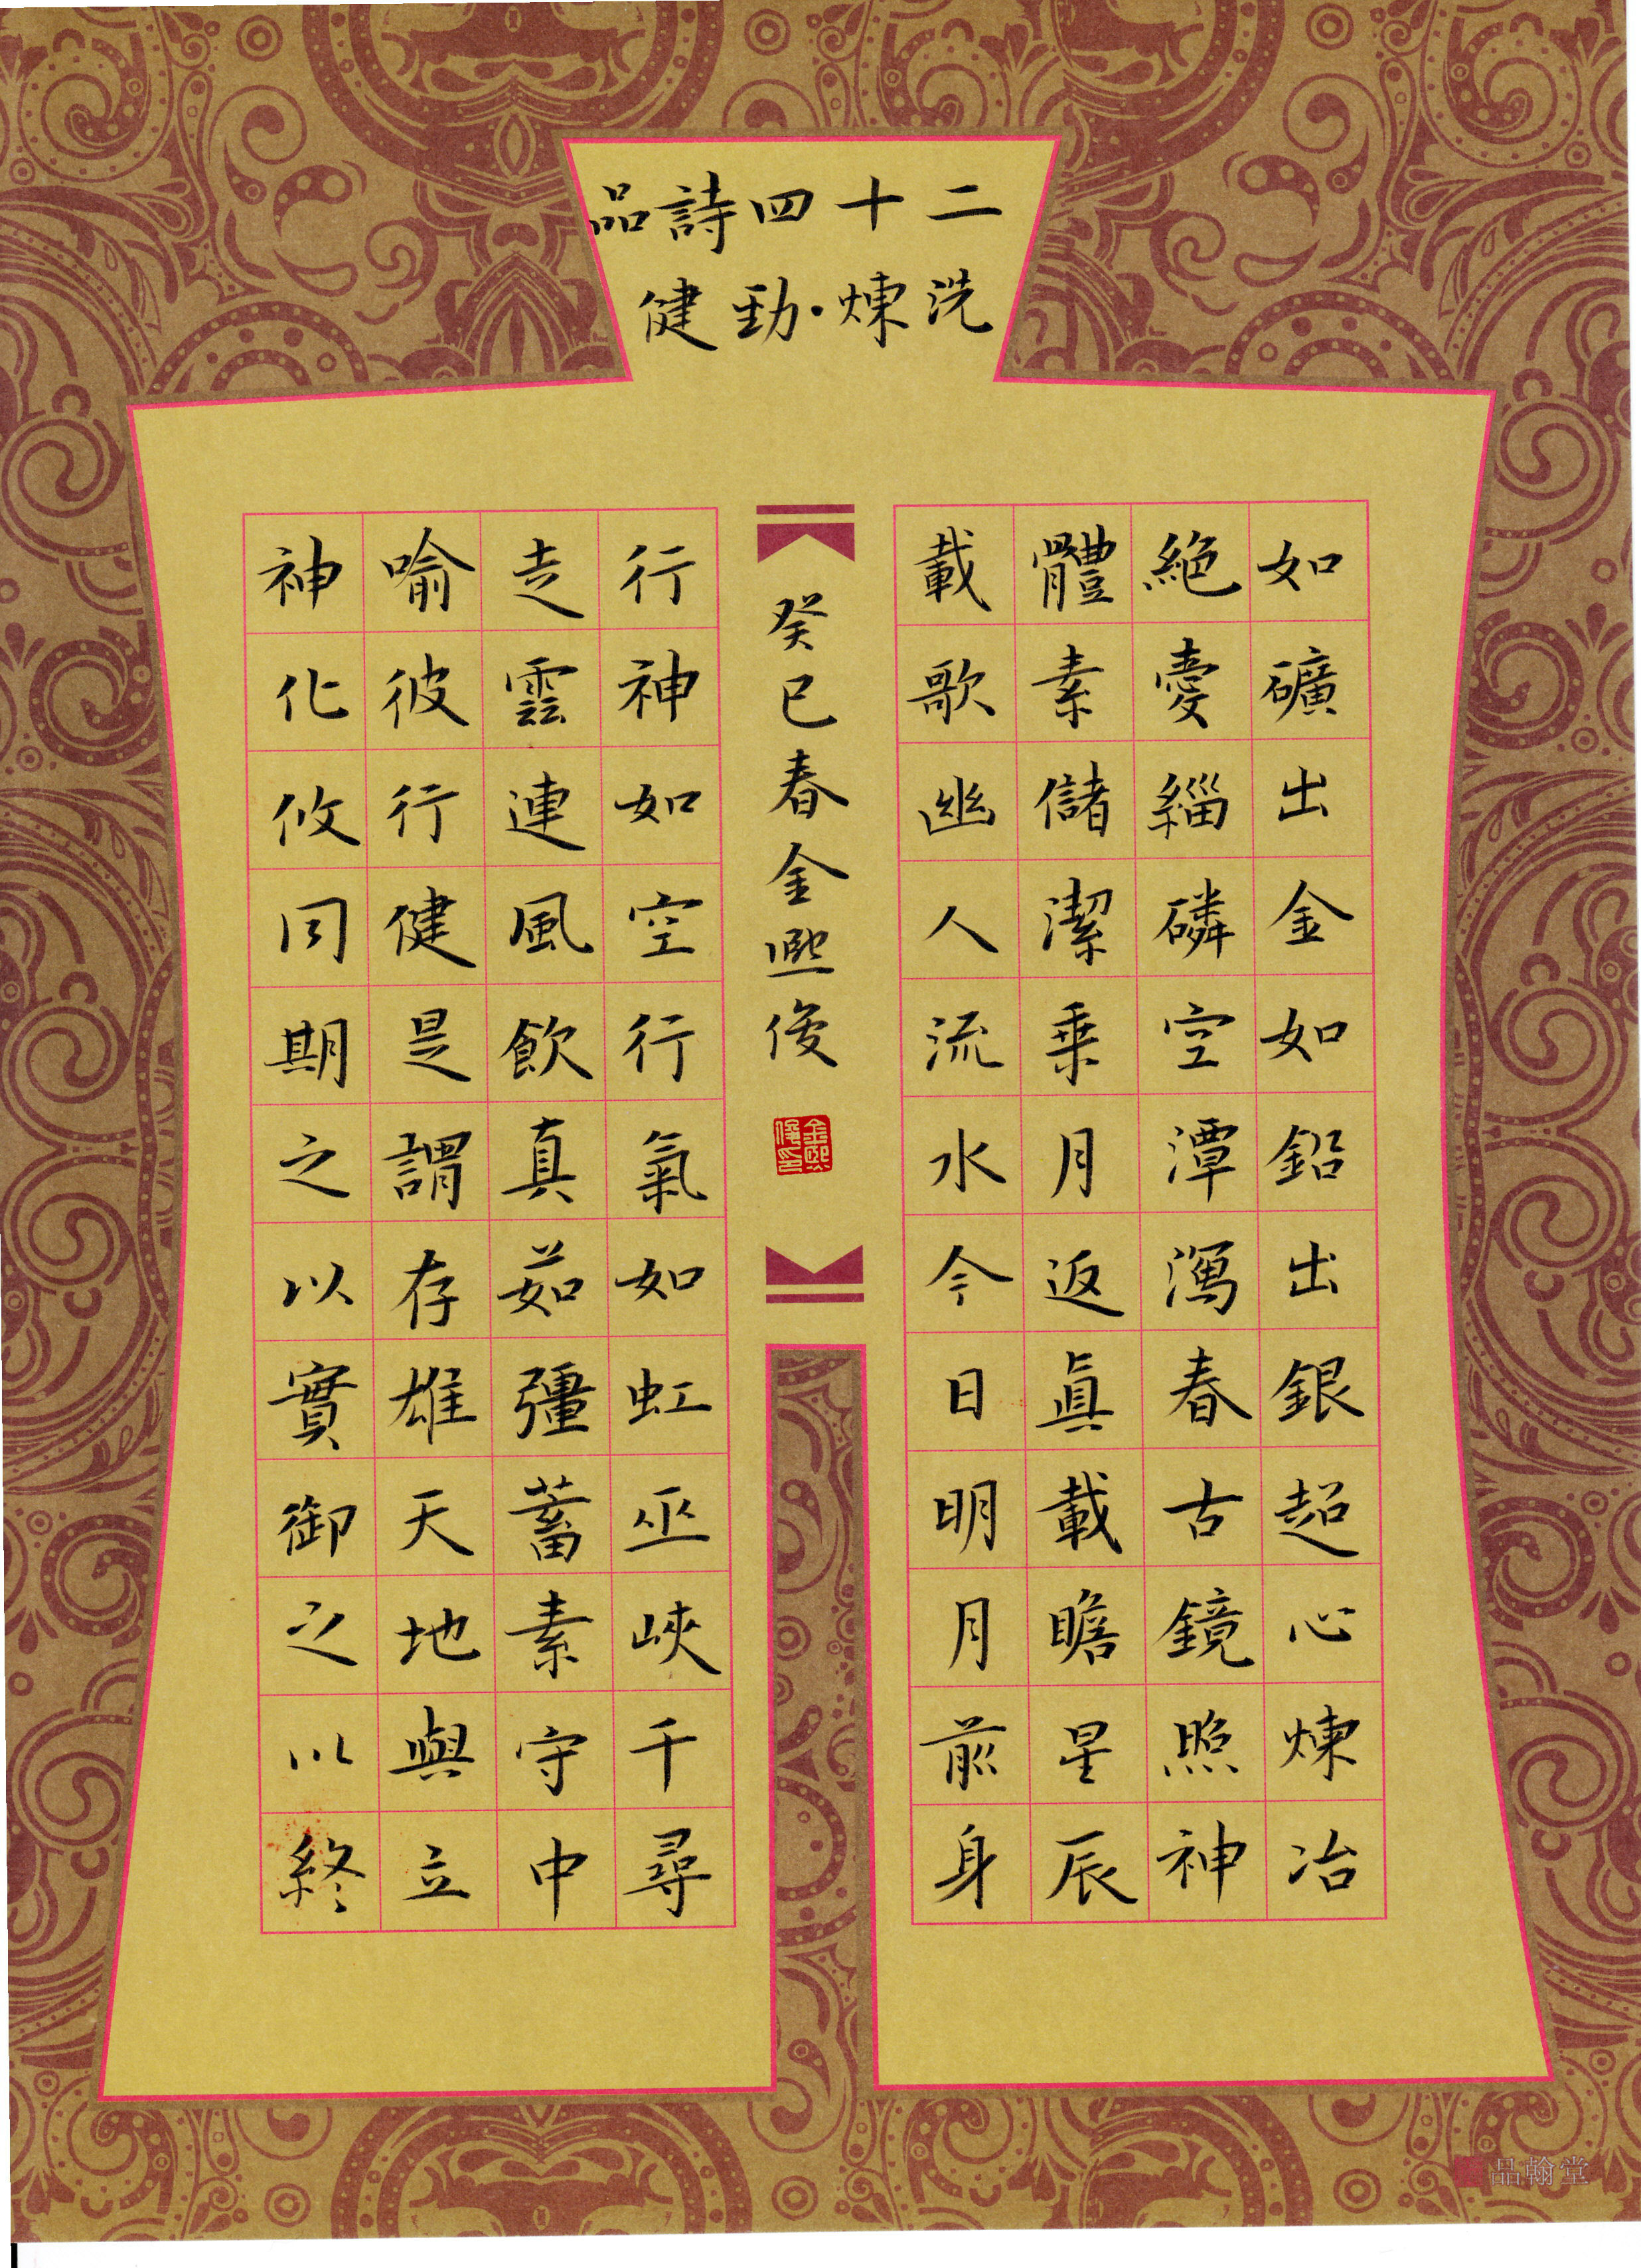 二十四詩品
洗煉·勁健
如礦出金如鉛出銀超心煉冶
絕愛緇磷空潭瀉春古鏡照神
體素儲潔乘月返眞載瞻星辰
載歌幽人流水今日明月前身
癸巳春金熙俊
金熙俊印
行神如空行氣如虹巫峽千尋
走雲連風飲真茹彊蓄素守中
喻彼行健是謂存雄天地與立
神化攸同期之以實御之以終
品翰堂